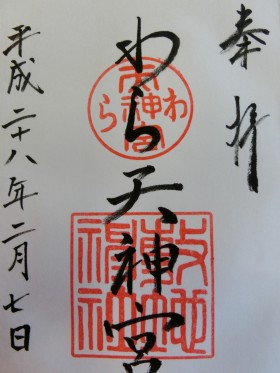 奉拝
わら天神宮
平成二十八年二月七日
わら
天神宮
敷地神社